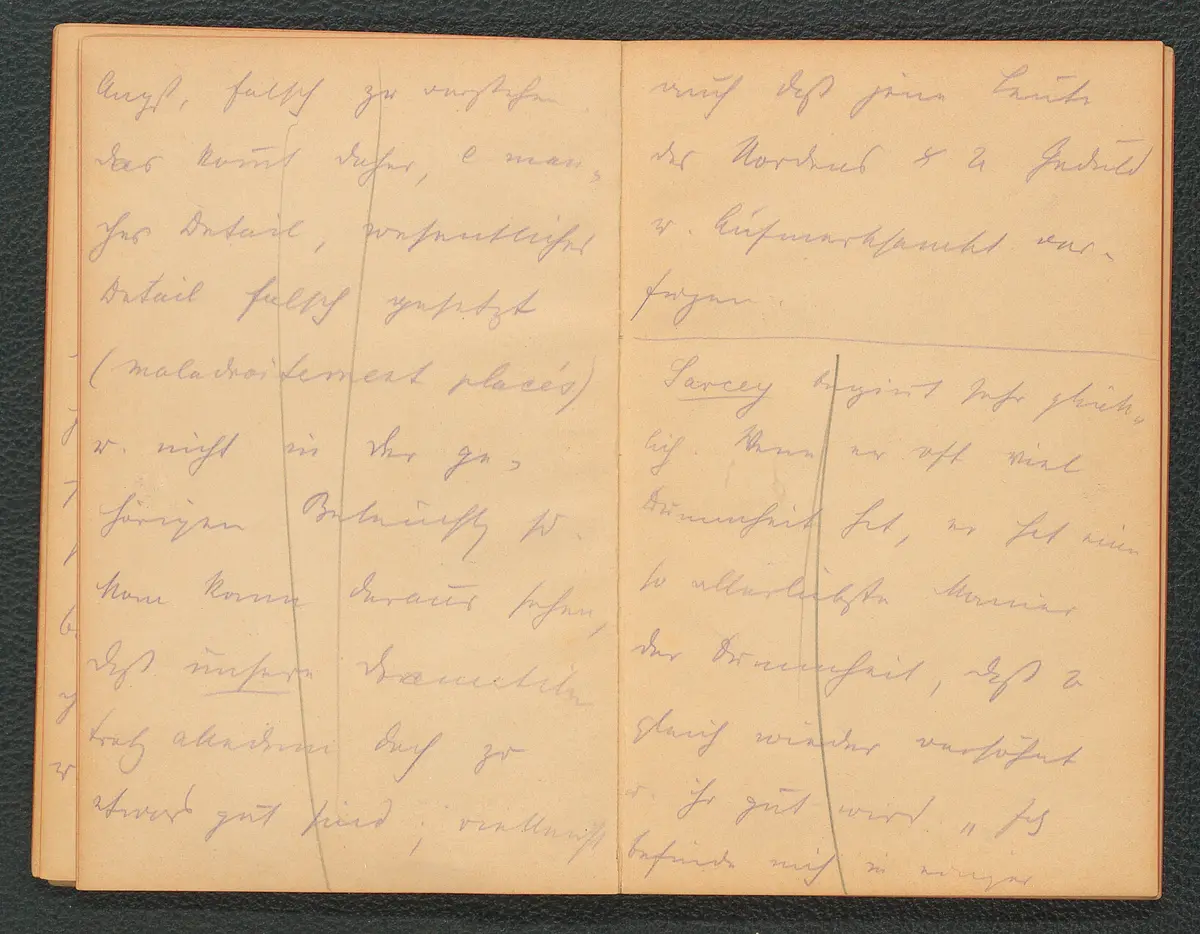 Angst, falsch zu verstehen.
das kom̅t daher, man-
ches Detail, wesentliches
Detail falsch gesetzt
(maladroitement placés)
u. nicht in der ge-
hörigen Beleuchtg
Man kann daraus sehen,
daß unsere Dramatiker
trotz alledem doch zu
etwas gut sind; vielleicht
auch daß jene Leute
des Nordens Geduld
u. Aufmerksamkt ver-
fügen.
Sarcey begin̅t sehr glück-
lich. Wenn er oft viel
Dummheit hat, er hat eine
so allerliebste Manier
der Dummheit, daß
gleich wieder versöhnt
u. ihr gut wird. „Ich
befinde mich in einiger